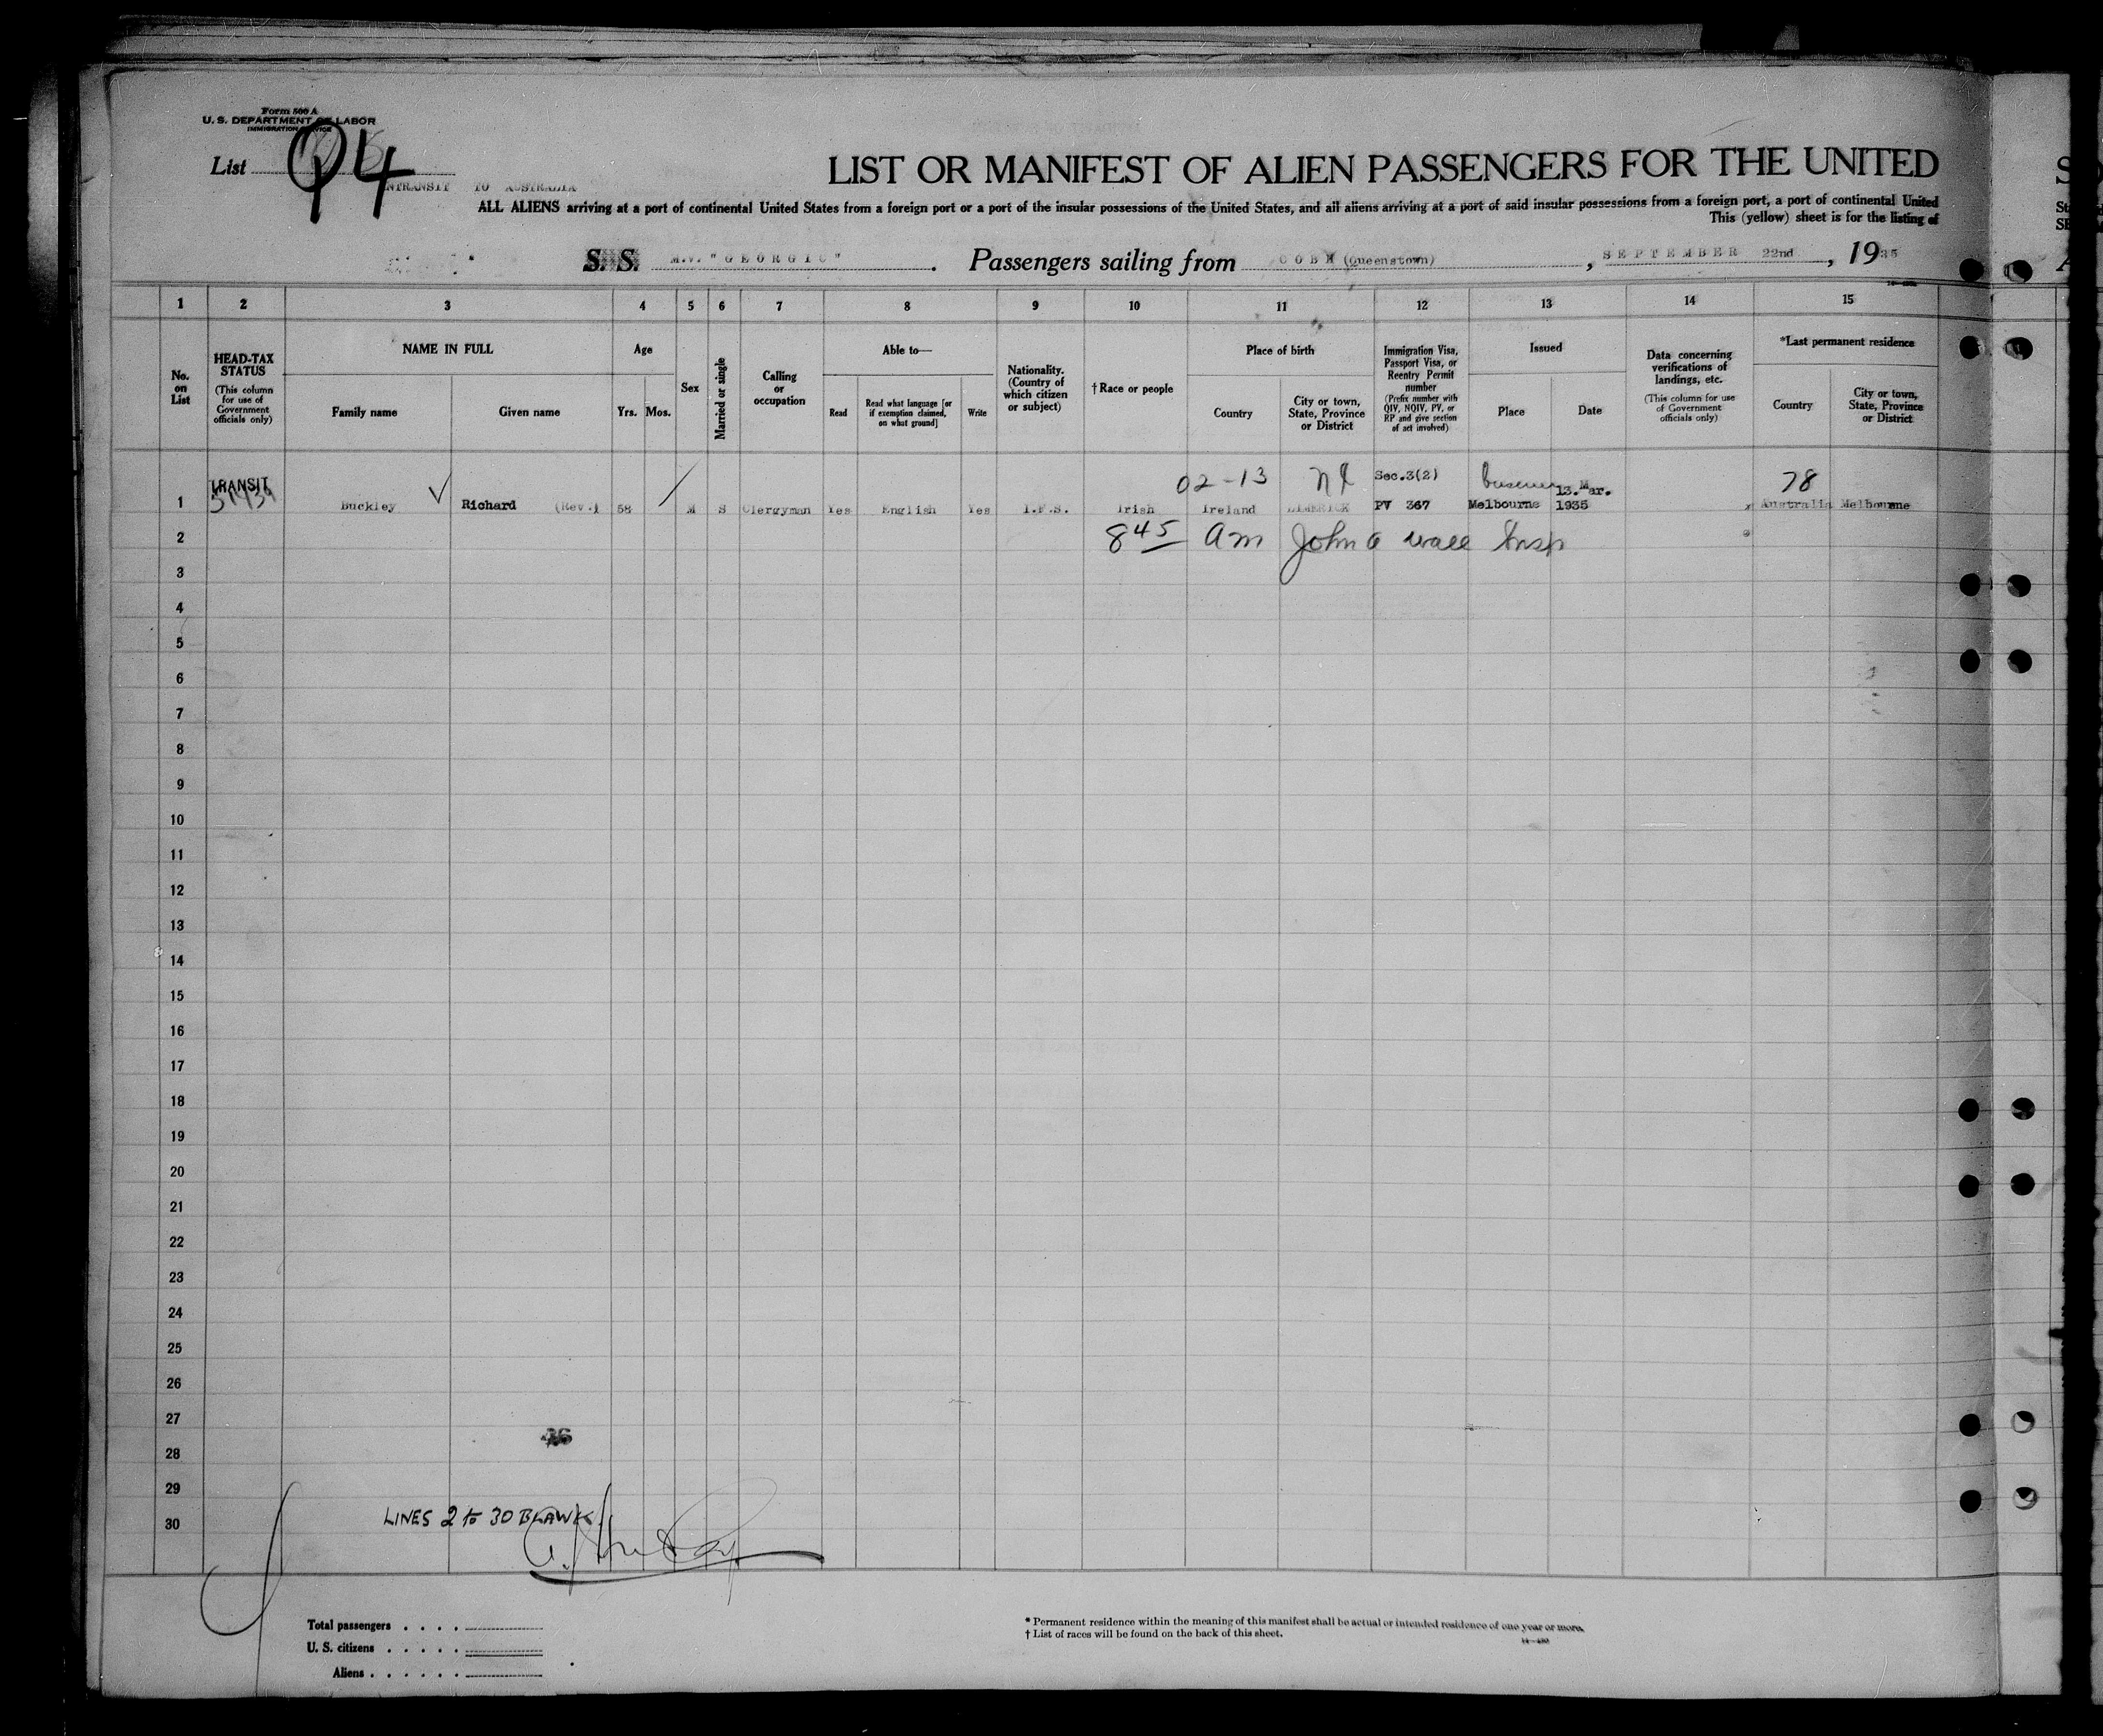 Form 500 A
U. S. DEPARTMENT OF LABOR
IMMIGRATION SERVICE
List 94
INTRANSIT TO AUSTRALIA
LIST OR MANIFEST OF ALIEN PASSENGERS FOR THE UNITED
ALL ALIENS arriving at a port of continental United States from a foreign port or a port of the insular possessions of the United States, and all aliens arriving at a port of said insular possessions from a foreign port, a port of continental United
This (yellow) sheet is for the listing of
S. S. M.V. "GEORGIC". Passengers sailing from COBH (Queenstown), SEPTEMBER 22nd, 1935
1 2 3 4 5 6 7 8 9 10 11 12 13 14 15
No. on List
HEAD-TAX STATUS
(This column for use of Government officials only)
NAME IN FULL
Family name
Given name
Age
Yrs. Mos.
Sex
Married or single
Calling or occupation
Able to—
Read
Read what language [or if exemption claimed, on what ground]
Write
Nationality. (Country of which citizen or subject)
† Race or people
Place of birth
Country
City or town, State, Province or District
Immigration Visa, Passport Visa, or Reentry Permit number
(Prefix number with QIV, NQIV, PV, or RP and give section of act involved)
Issued
Place
Date
Data concerning verifications of landings, etc.
(This column for use of Government officials only)
*Last permanent residence
Country
City or town, State, Province or District
TRANSIT 02-13 Sec.3(2) 13.Mar. 78
1 Buckley Richard (Rev.) 58 M S Clergyman Yes English Yes I.F.S. Irish Ireland LIMERICK PV 367 Melbourne 1935 x Australia Melbourne
2 8 45 am John A Wall Insp
3
4
5
6
7
8
9
10
11
12
13
14
15
16
17
18
19
20
21
22
23
24
25
26
27
28
29
30
LINES 2 to 30 BLANK.
Total passengers
U. S. citizens
Aliens
* Permanent residence within the meaning of this manifest shall be actual or intended residence of one year or more.
† List of races will be found on the back of this sheet.